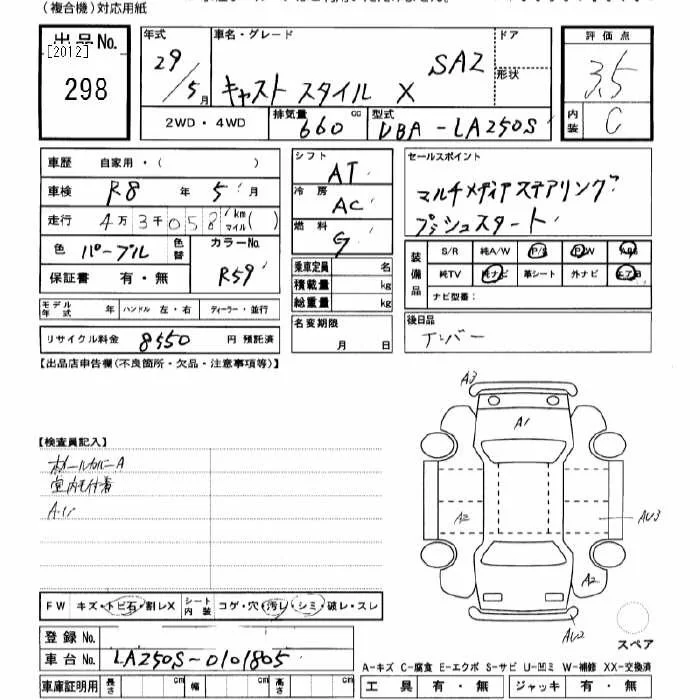 (複合機)対応用紙
出品No. [2012] 298
年式 29/5月 車名・グレード キャスト スタイル X SA2 ドア 形状 評価点 3.5
2WD・4WD 排気量 660 cc 型式 DBA-LA250S 内装 C
車歴 自家用・( )
車検 R8 年 5 月
走行 4万3千058 km マイル( )
色 パープル 色替 カラーNo. R59
保証書 有・無
モデル年式 年 ハンドル 左・右 ディーラー・並行
リサイクル料金 8550 円 預託済
シフト AT
冷房 AC
燃料 G
乗車定員 名
積載量 kg
総重量 kg
名変期限 月 日
セールスポイント
マルチメディアステアリング
プッシュスタート
装備品 S/R 純A/W P/S P/W ABS
純TV 純ナビ 革シート 外ナビ エアB
ナビ型番:
後日品
【出品店申告欄(不良箇所・欠品・注意事項等)】
A3
A1
A2
AU3
A2
AU2
スペア
【検査員記入】
ホイールカバーA
室内毛付着
FW キズ・トビ石・割レX シート内装 コゲ・穴・汚レ・シミ・破レ・スレ
登録 No.
車台 No. LA250S-0101805
車庫証明用 長さ cm 幅 cm 高さ cm
A-キズ C-腐食 E-エクボ S-サビ U-凹ミ W-補修 XX-交換済
工具 有・無 ジャッキ 有・無